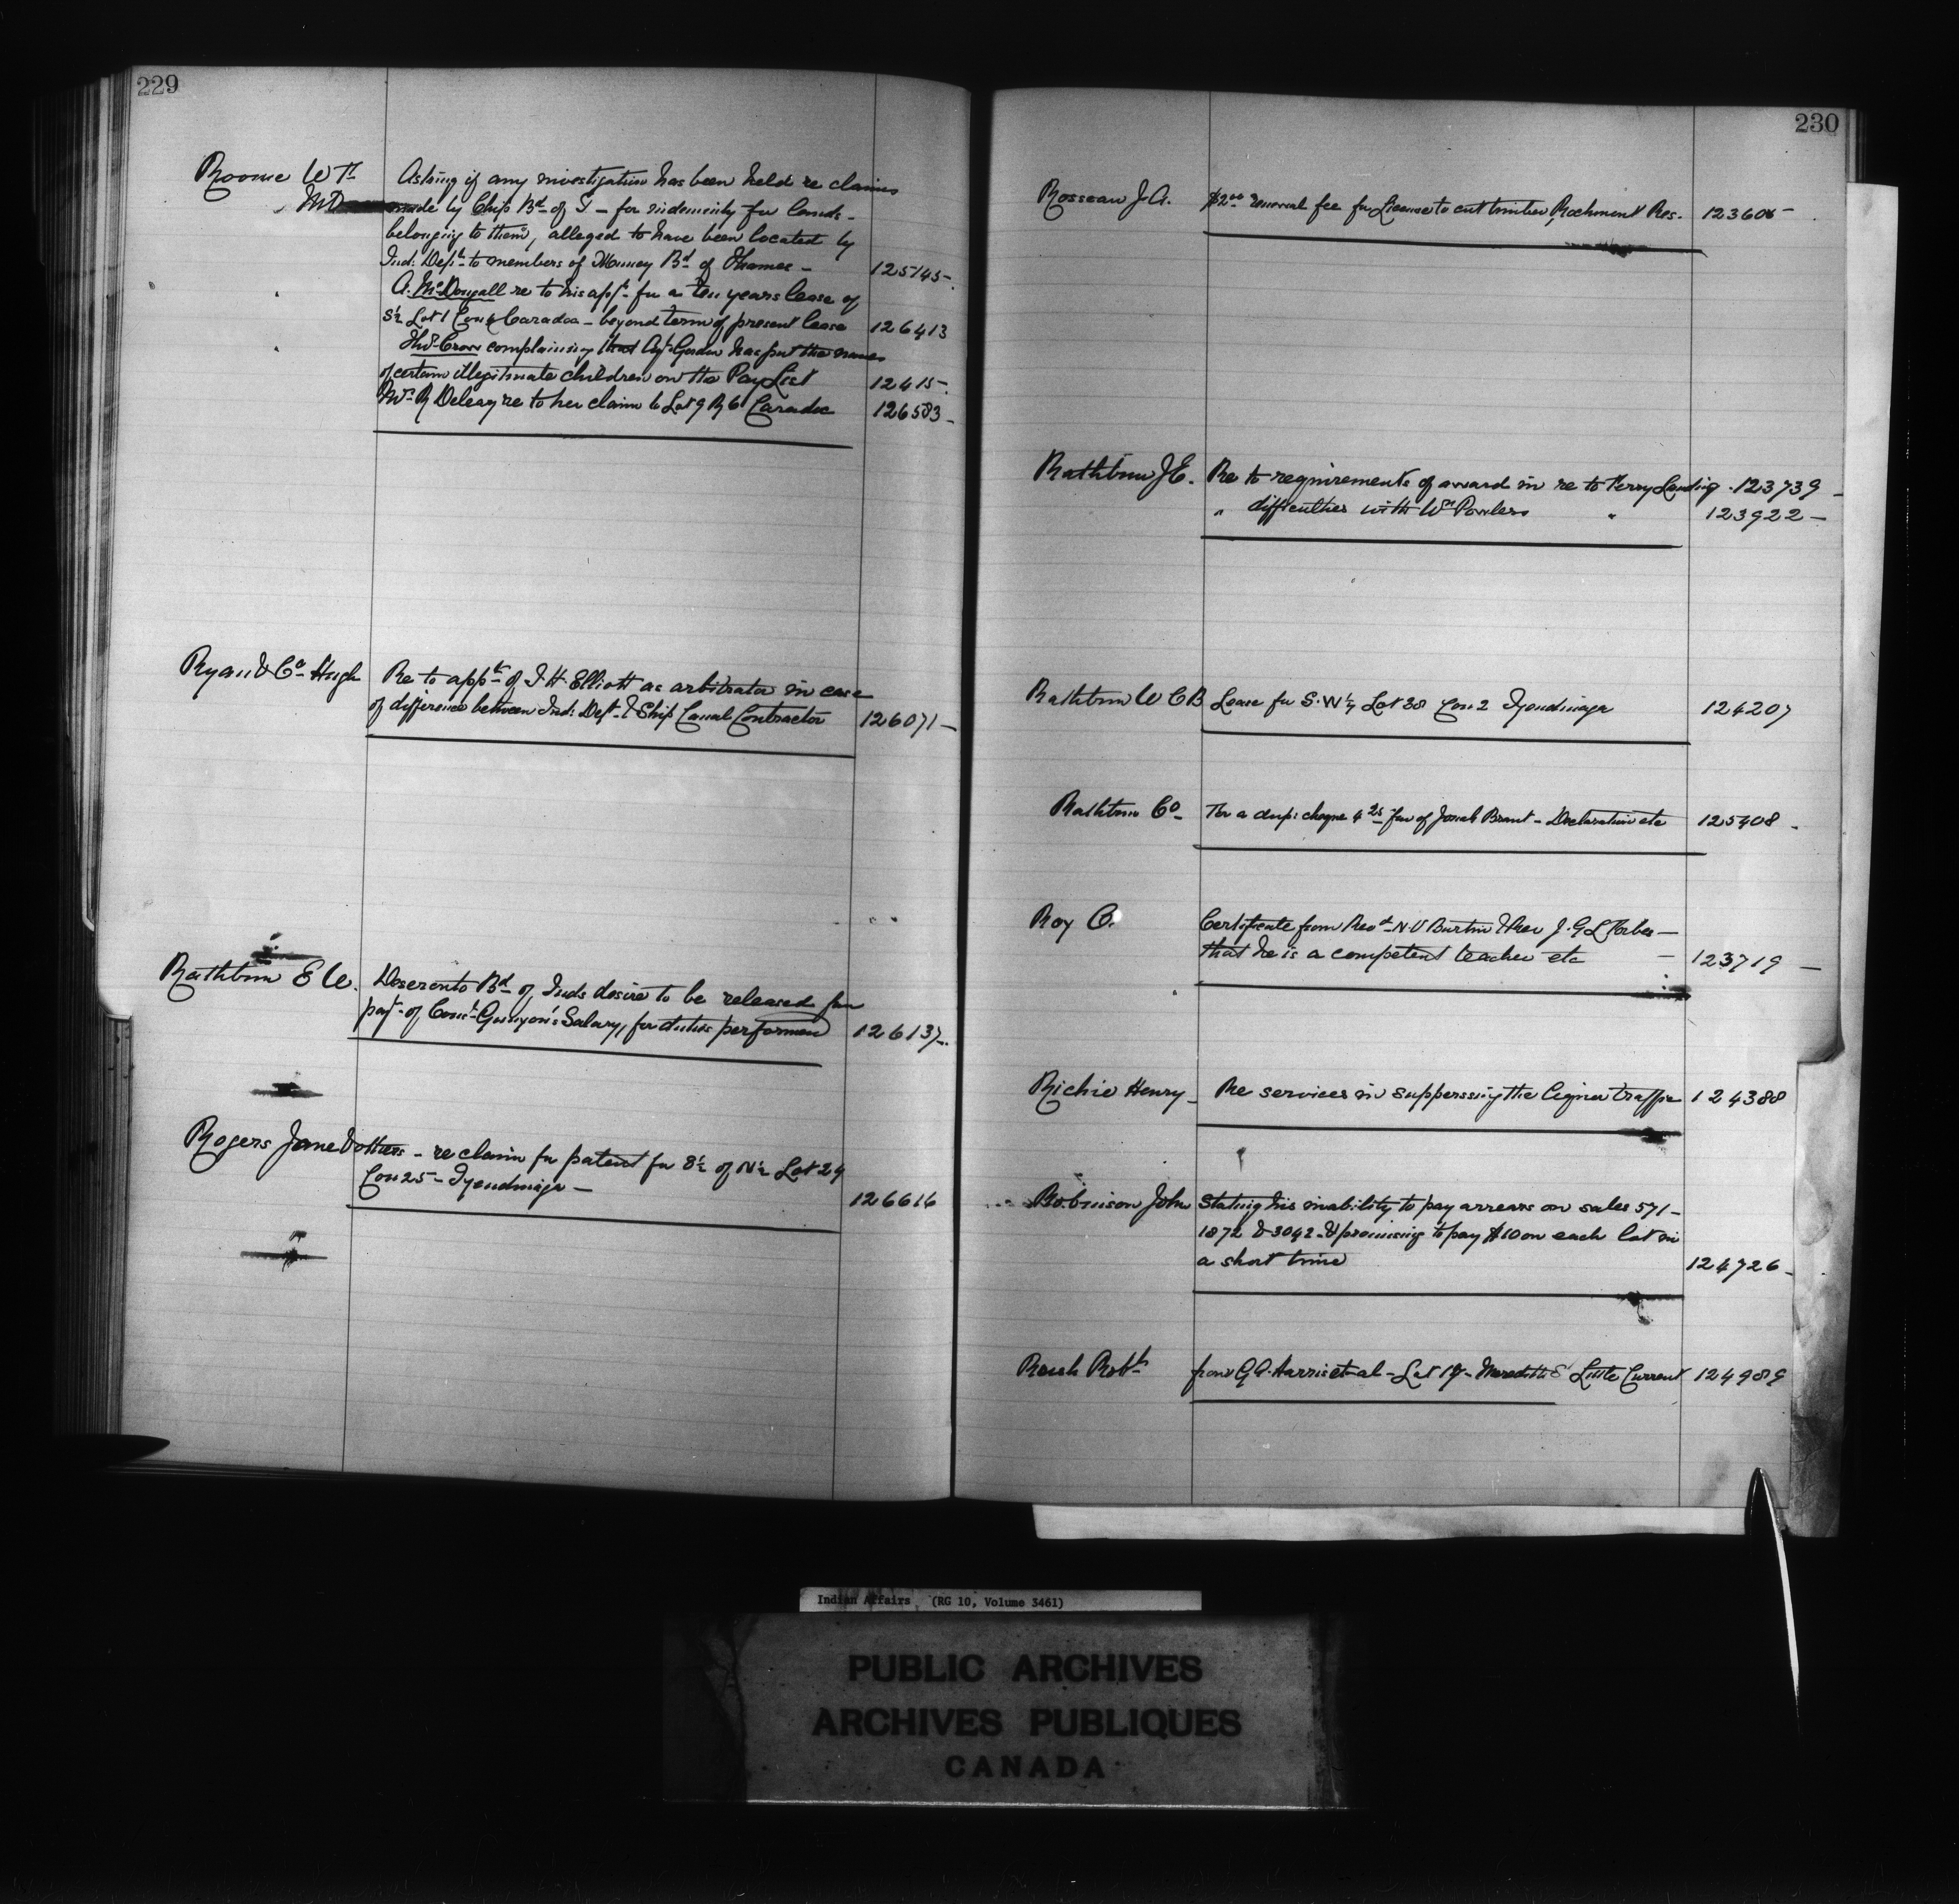 229
Roome W F
M.D.
Asking if any investigation has been held re claims
made by Chip Bd of T - for indemnity for lands -
belonging to them, alleged to have been located by
Ind: Dept to members of Munsey Bd of Thames - 125145 -
A. McDougall re to his appn for a ten years lease of
S½ Lot 1 Con 6 Caradoc - beyond term of present lease 126413
Thos Cross complaining that Agt Gordon has put the names
of certain illegitimate children on the Pay List 12415 -
Mrs R Deleary re to her claim to Lot 9 R 6 Caradoc 126583 -
Ryan & Co Hugh
Re to appt of J. H. Elliott as arbitrator in case
of difference between Ind: Dept & Ship Canal Contractor 126071 -
Rathbun E W.
Deseronto Bd of Inds desire to be released from
payt of Const Gunyon's Salary, for duties performed 126137 -
Rogers Jane & others - re claim for patent for S½ of N½ Lot 24
Con 25 - Tyendinaga - 126616
230
Rosseau J. A. $2.00 renewal fee for License to cut timber Rochmont Res. 123606 -
Rathbun J E. Re to requirements of award in re to Ferry Landing - 123739 -
" difficulties with Wm Powless " 123922 -
Rathbun W C B Lease for S.W¼ Lot 38 Con 2 Tyendinaga 124207
Rathbun Co For a dup: cheque 4.25 fav of Josiah Brant - Declaration etc 125408 -
Roy O. Certificate from Revd N. V Burtin & Rev J. G L Forbes -
that he is a competent teacher etc - 123719 -
Richie Henry - Re services in suppressing the liquor traffic 124388
Robinson John Stating his inability to pay arrears on sales 571 -
1872 & 3042 - & promising to pay $10 on each lot in
a short time 124726 -
Robt from G A. Harris et al - Lot 19 - Meredith S Little Current 124989
Indian Affairs (RG 10, Volume 3461)
PUBLIC ARCHIVES
ARCHIVES PUBLIQUES
CANADA